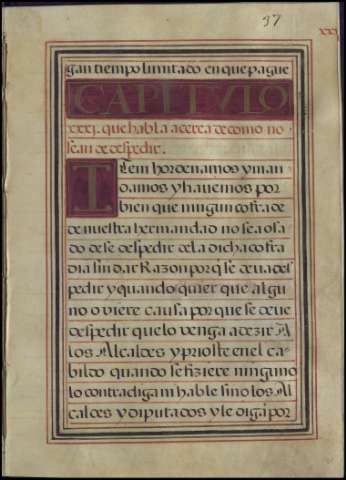 37
XXX
gan tiempo limitado en que pague
CAPITVLO
XXXI. que habla acerca de como no
sean de espedir.
Item hordenamos y man
damos y havemos por
bien que ningun cofrade
de nuestra hermandad no sea osa
do de se despedir de la dicha cofra
dia sin dar Razon porq̃ se deua des
pedir y quando quier que algu
no oviere causa por que se deue
despedir que lo venga a dezir A
los Alcaldes y prioste en el ca-
bildo quando se fiziere ninguno
lo contradiga ni hable sino los Al
caldes y diputados y le oigã por